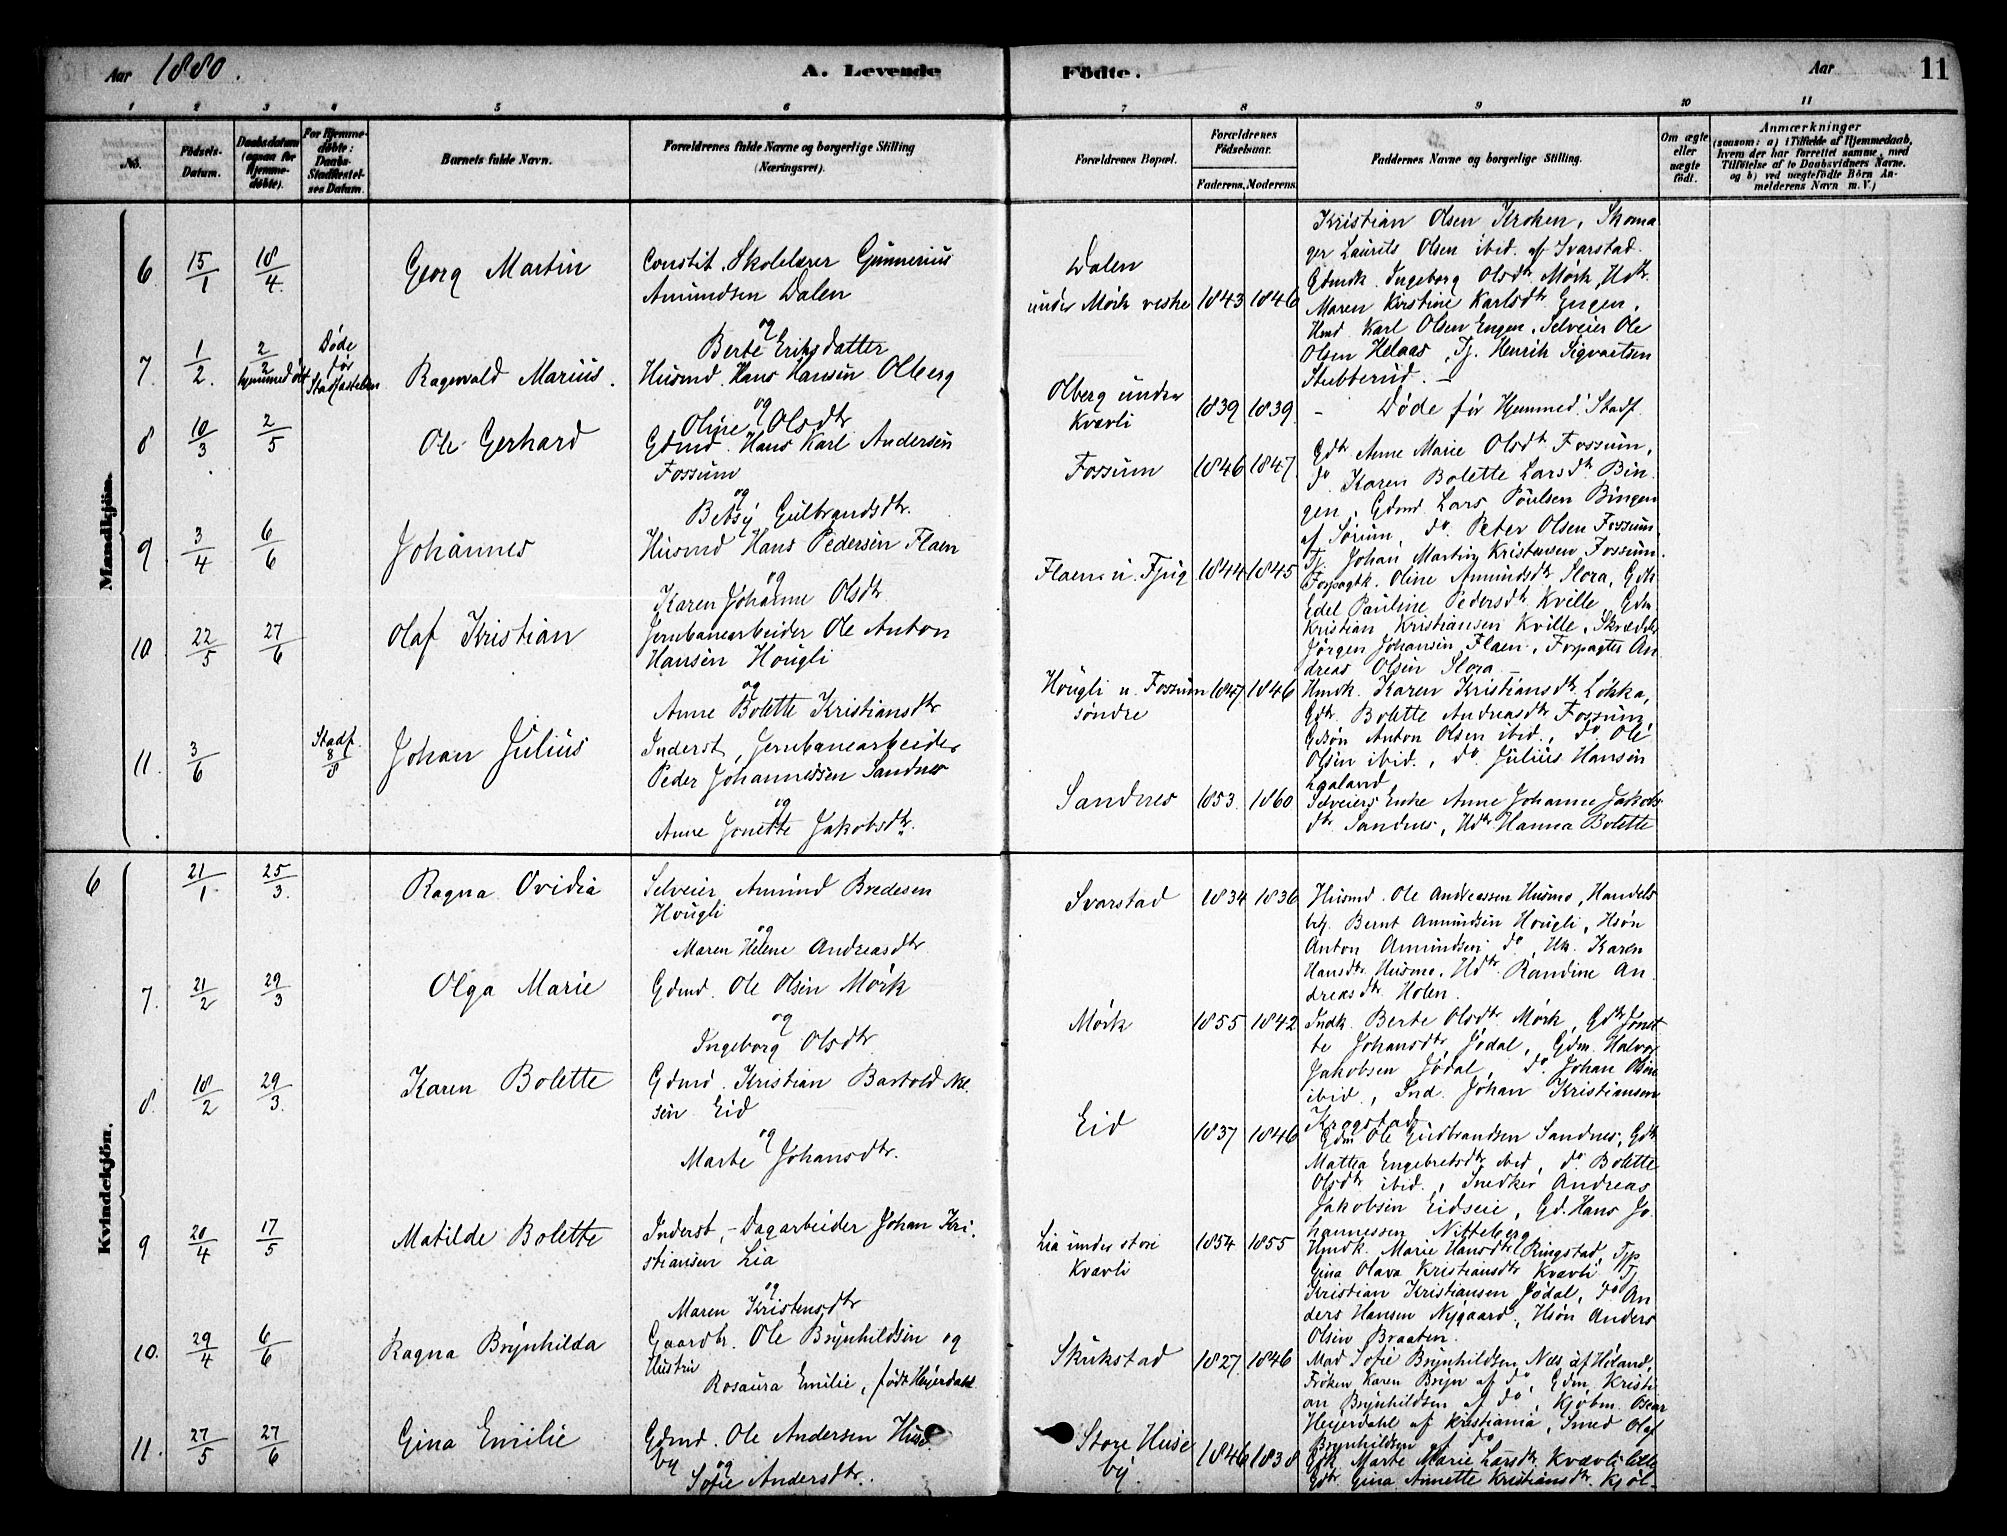 Aar 1880.
A. Levende
Fødte.
Aar
11
1 2 3 4 5 6 7 8 9 10 11
No.
Födsels-Datum.
Daabsdatum (ogsaa for Hjemme-døbte).
For Hjemme-døbte: Daabs-Stadfæstel-ses Datum.
Barnets fulde Navn.
Forældrenes fulde Navne og borgerlige Stilling (Næringsvei).
Forældrenes Bopæl.
Forældrenes Födselsaar.
Faderens. Moderens.
Faddernes Navne og borgerlige Stilling.
Om ægte eller uægte født.
Anmærkninger
(saasom: a) i Tilfælde af Hjemmedaab, hvem der har forrettet samme, med Tilföielse af to Daabsvidners Navne. og b) ved uægtefødte Börn An-melderens Navn m. V.)
Mandkjön.
6. 15/1 18/4. Georg Martin
Constit. Skolelærer Gunnerius
Amundsen Dalen
og
Berte Eriksdatter
Dalen
under Mörk vestre 1843 1846
Kristian Olsen Kroken, Skoma
ger Laurits Olsen ibid. af Svarstad.
Gdmdk. Ingeborg Olsdtr Mörk, Hdtr.
Maren Kirstine Karlsdtr Engen,
Hmd Karl Olsen Engen, Selveier Ole
Olsen Helaas, Tj. Henrik Sigvartsen
Stubberud. –
7. 1/2. 2/2 hjemmedöbt
Døde
før
Stadfæstelsen
Ragnvald Marius.
Husmd. Hans Hansen Olberg
og
Oline Olsdtr
Olberg under
Kvævli
1839 1839
– Døde før Hjemmed. Stadf.
8 10/3 2/5 Ole Gerhard
Gdmd. Hans Karl Andersen
Fossum
og
Betsy Gulbrandsdtr.
Fossum 1846 1847
Gdtr Anne Marie Olsdtr Fossum,
do Karen Bolette Larsdtr Bin
gen, Gdmd. Lars Poulsen Bingen
af Sörum, do. Peter Olsen Fossum,
Tj. Johan Martin Kristensen Fossum.
9 3/4 6/6 Johannes
Husmd Hans Pedersen Flaen
og
Karen Johanne Olsdtr.
Flaen u. Fjug 1844 1845
Forpagtk. Oline Amundsdtr Slora, Gdtr
Edel Pauline Pedersdtr Kville, Gdm.
Kristian Kristiansen Kville, Skrædder
Jørgen Johansen Flaen, Forpagter An
dreas Olsen Slora –
10 22/5 27/6 Olaf Kristian
Jernbanearbeider Ole Anton
Hansen Hougli
og
Anne Bolette Kristiansdtr
Hougli u. Fossum
søndre
1847 1846
Hmdk. Karen Kristiansdtr Løkka,
Gdtr. Bolette Andreasdtr Fossum,
Gdsøn Anton Olsen ibid., do. Ole
Olsen ibid., do. Julius Hansen
Haaland
11. 3/6
Stadf.
8/8
Johan Julius
Inderst, Jernbanearbeider
Peder Johannessen Sandnes
og
Anne Jonette Jakobsdtr.
Sandnes 1853. 1860
Selveiers Enke Anne Johanne Jakobs
dtr Sandnes, Hdtr Hanna Bolette
Kvindekjön.
6 21/1 25/3. Ragna Ovidia
Selveier Amund Bredesen
Hougli
og
Maren Helene Andreasdtr
Svarstad 1834 1836
Husmd. Ole Andreassen Husmo, Handels
btj. Bernt Amundsen Hougli, Hsøn
Anton Amundsen do, Hk. Karen
Hansdtr Husmo, Hdtr. Randine An.
dreasdtr Holen.
7. 21/2 29/3 Olga Marie
Gdmd. Ole Olsen Mörk
og
Ingeborg Olsdtr
Mörk 1855 1842
Indk. Berte Olsdtr Mörk, Gdtr Jonet
te Johansdtr Jödal, Gdm. Halvor
Jakobsen Jödal, do. Johan Olsen
ibid., Ind. Johan Kristiansen
Krogstad
8. 18/2 29/3. Karen Bolette
Gdmd. Kristian Bartold Nil
sen Eid
og
Marte Johansdtr.
Eid 1837 1846
Gdm Ole Gudbrandsen Sandnes, Gdtr.
Mattea Engebretsdtr ibid, do. Bolette
Olsdtr ibid., Snedker Andreas
Jakobsen Eidseie, Gd. Hans Jo
hannessen Nitteberg
9 20/4 17/5 Matilde Bolette
Inderst, – Dagarbeider Johan Kri.
stiansen Lia
og
Maren Kristensdtr
Lia under store
Kvævli
1854 1855
Hmdk. Marie Hansdtr Ringstad, Tjp
Gina Olava Kristiansdtr Kvævli Tj
Kristian Kristiansen Jödal, do An
ders Hansen Nygaard, Hsøn Anders
Olsen Braaten.
10. 29/4 6/6 Ragna Brynhilda
Gaardbr. Ole Brynhildsen og
Hustru
Rosaura Emilie, født Heyerdahl
Skukstad 1827 1846
Mad Sofie Brynhildsen Næs af Høland,
Frøken Karen Bryn af do, Gdm. Kristi
an Brynhildsen af do, Kjöbm. Oscar
Heyerdahl af Kristiania, Smed Olaf
Brynhildsen af do
11. 27/5 27/6 Gina Emilie
Gdmd. Ole Andersen Huse
by og
Sofie Andersdtr.
Store Huse
by.
1846 1838
Gdk Marte Marie Larsdtr. Kvævli lille
Gdtr. Gina Annette Kristiansdtr. Kjöl-